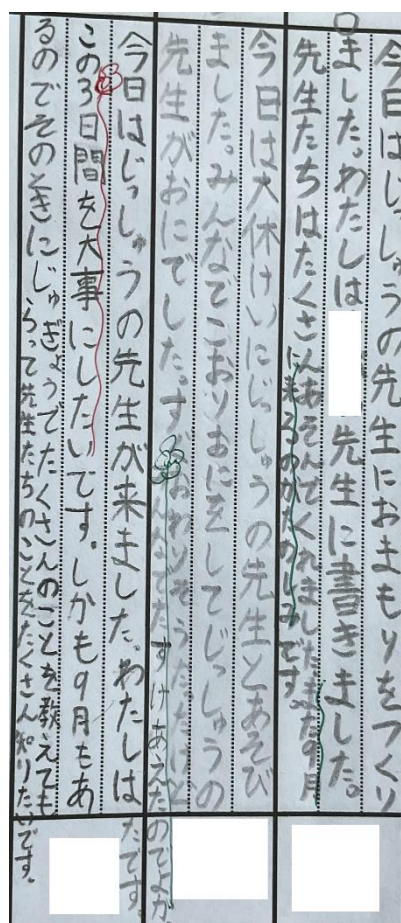 今日はじっしゅうの先生におまもりをつくり
ました。わたしは先生に書きました。
先生たちはたくさんあそんでくれました。また9月
に来るのがたのしみです。
今日は大休けいにじっしゅうの先生とあそび
ました。みんなでこおりおにをしてじっしゅうの
先生がおにでした。すぐおわりそうだったけど
みんなでたすけあえたのでよか
ったです。
今日はじっしゅうの先生が来ました。わたしは
この3日間を大事にしたいです。しかも9月もあ
るのでそのときにじゅぎょうでたくさんのことを教えても
らって先生たちのことをたくさん知りたいです。